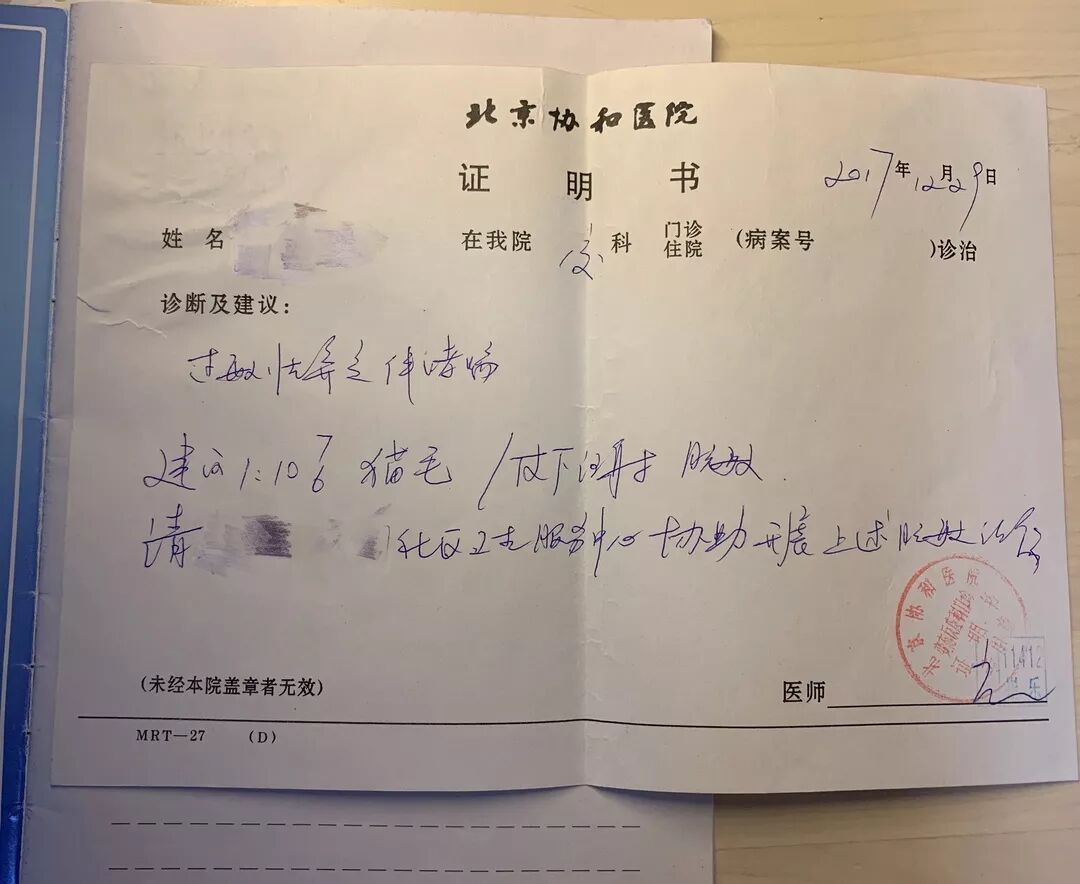 北京协和医院
证明书
2017年12月29日
姓名 在我院 变科 门诊 住院 (病案号 )诊治
诊断及建议:
过敏性鼻炎伴哮喘
建议1:10 猫毛 皮下注射 脱敏
请 社区卫生服务中心协助开展上述脱敏治疗
北京协和医院
(未经本院盖章者无效)
医师
MRT—27 (D)